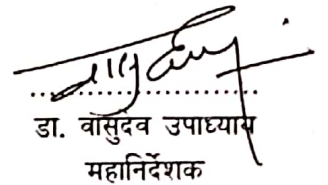 डा. वासुदेव उपाध्याय
महानिर्देशक